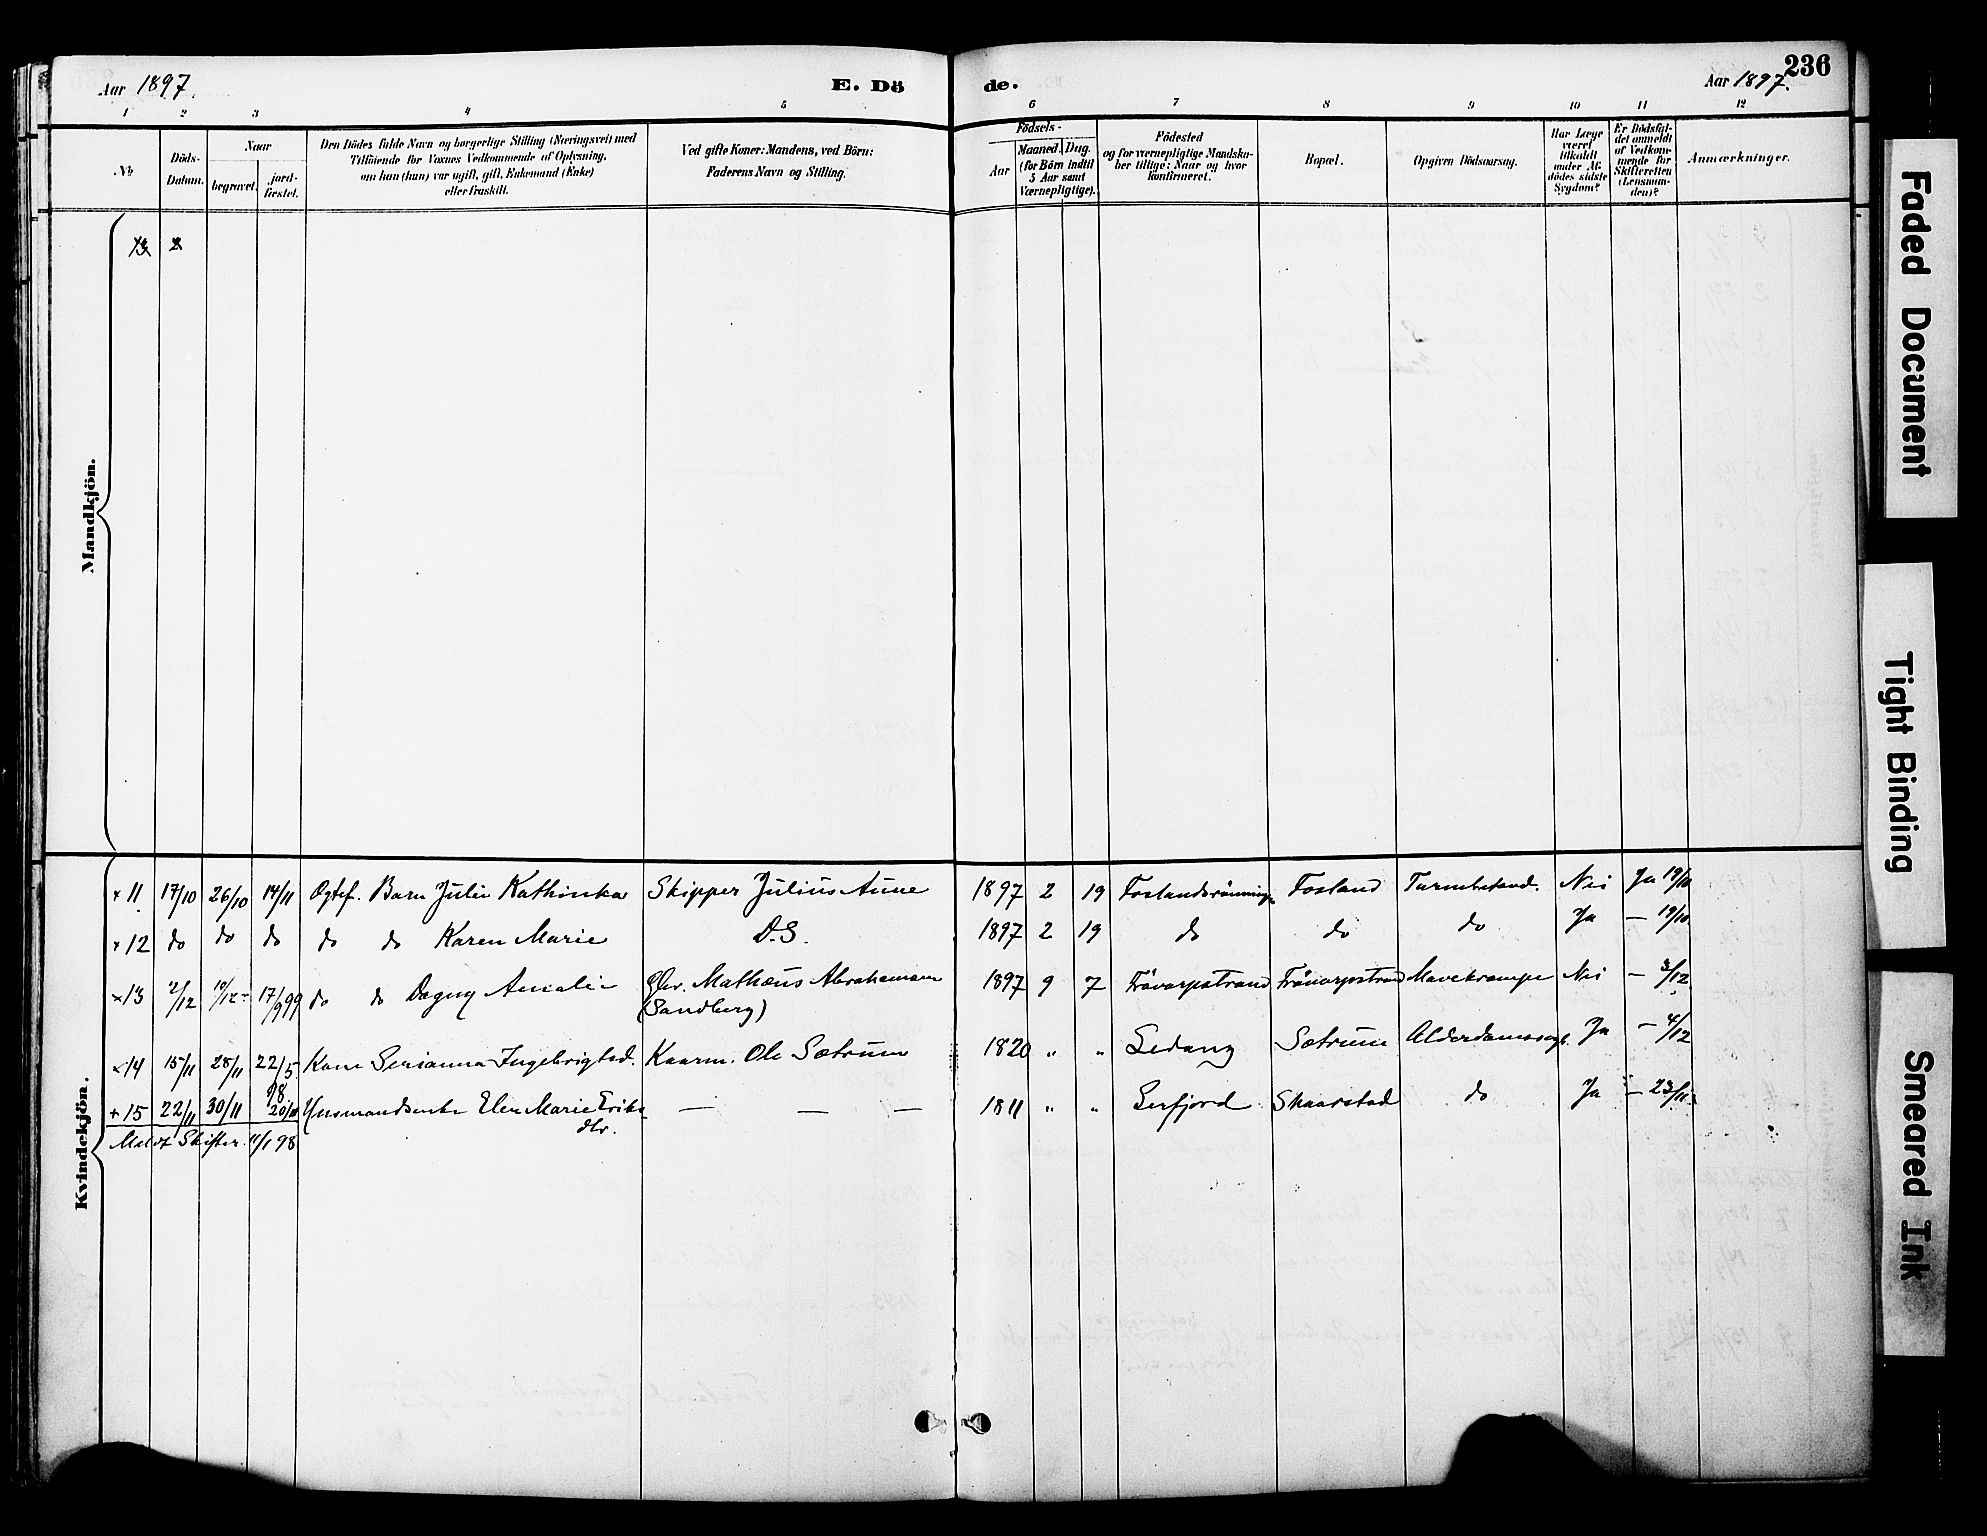 236
Aar 1897.
E. Dö
de.
Aar 1897.
1 2 3 4 5 6 7 8 9 10 11 12
No
Döds-
Datum.
Naar
begravet.
jord-
fæstet.
Den Dödes fulde Navn og borgerlige Stilling (Næringsvei) med
Tilföiende for Voxnes Vedkommende af Oplysning,
om han (hun) var ugift, gift, Enkemand (Enke)
eller fraskilt.
Ved gifte Koner: Mandens, ved Börn:
Faderens Navn og Stilling.
Födsels-
Aar
Maaned. Dag.
(for Börn indtil
5 Aar samt
Værnepligtige).
Födested
og for værnepligtige Mandska-
ber tillige: Naar og hvor
konfirmeret.
Bopæl.
Opgiven Dödsaarsag.
Har Læge
været
tilkaldt
under Af-
dödes sidste
Sygdom?
Er Dödsfal-
det anmeldt
af Vedkom-
mende for
Skifteretten
(Lensman-
den)?
Anmærkninger.
Mandkjön.
Kvindekjön.
+ 11 17/10 26/10 14/11 Ogtef. Barn Julie Kathinka Skipper Julius Aune 1897 2 19 Foslandsrönningen Fosland Nei Ja 19/10
+ 12 do do do do do Karen Marie D.S. 1897 2 19 do do do Ja — 19/10
+ 13 2/12 10/12 17/9 99 do do Dagny Amalie Mathæus Abrahamsen 1897 9 7 Mavekrampe Nei — 3/12
(Sandberg)
+ 14 15/11 28/11 22/5 98 Kone Serianna Ingebrigtsd. Kaarm. Ole Sætrum 1820 " " Ledang Sætrum Ja — 4/12
+ 15 22/11 30/11 20/11 Husmandsenke Elen Marie Eriks- — — — 1811 " " Skaarstad do Ja — 23/11
dtr.
Meldt Skifter. 11/1 98
Faded Document
Tight Binding
Smeared Ink